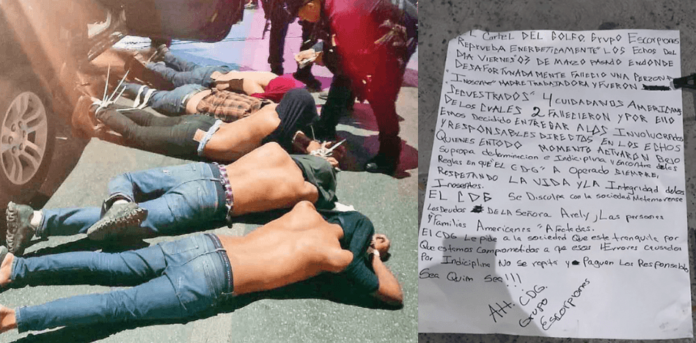 El Cartel DEL GOLFO, Grupo Escorpiones
REPRUEBA ENERGETICAMENTE LOS Echos DEL
DIA VIERNES 03 DE MARZO ENDONDE
DESAFORTUNADAMENTE FAllECIO UNA PERSONA
"Inosente" MADRE TRABAJADORA y FUERON
SECUESTRADOS" 4 CUIDADANOS AMERICANOS
DELOS CUALES 2 FAllECIERON y POR Ello
Emos Decidido ENTREGAR A LOS INVOLUCRADOS
y RESPONSABLES DIRECTOS EN LOS Echos
QUIENES EN TODO MOMENTO ACTUARON BAJO
SU PROPIA determinacion e Indiciplina y encontra delas
Reglas EN QUE EL "CDG" A Operado SIEMPRE,
RESPETANDO LA VIDA y LA Integridad delos
Inosentes.
El CDG SE Disculpa con la sociedad Matamorense
Los Deudos DE LA SEÑORA Arely, y Las personas
y Familias Americanas "Afectadas.
El CDG Le pide a la sociedad Que este tranquila por
Que estamos Comprometidos a que esos Errores causados
Por Indiciplina No se repita y Paguen Los Responsables
Sea Quim Sea!!!
Att. CDG.
Grupo
Escorpiones